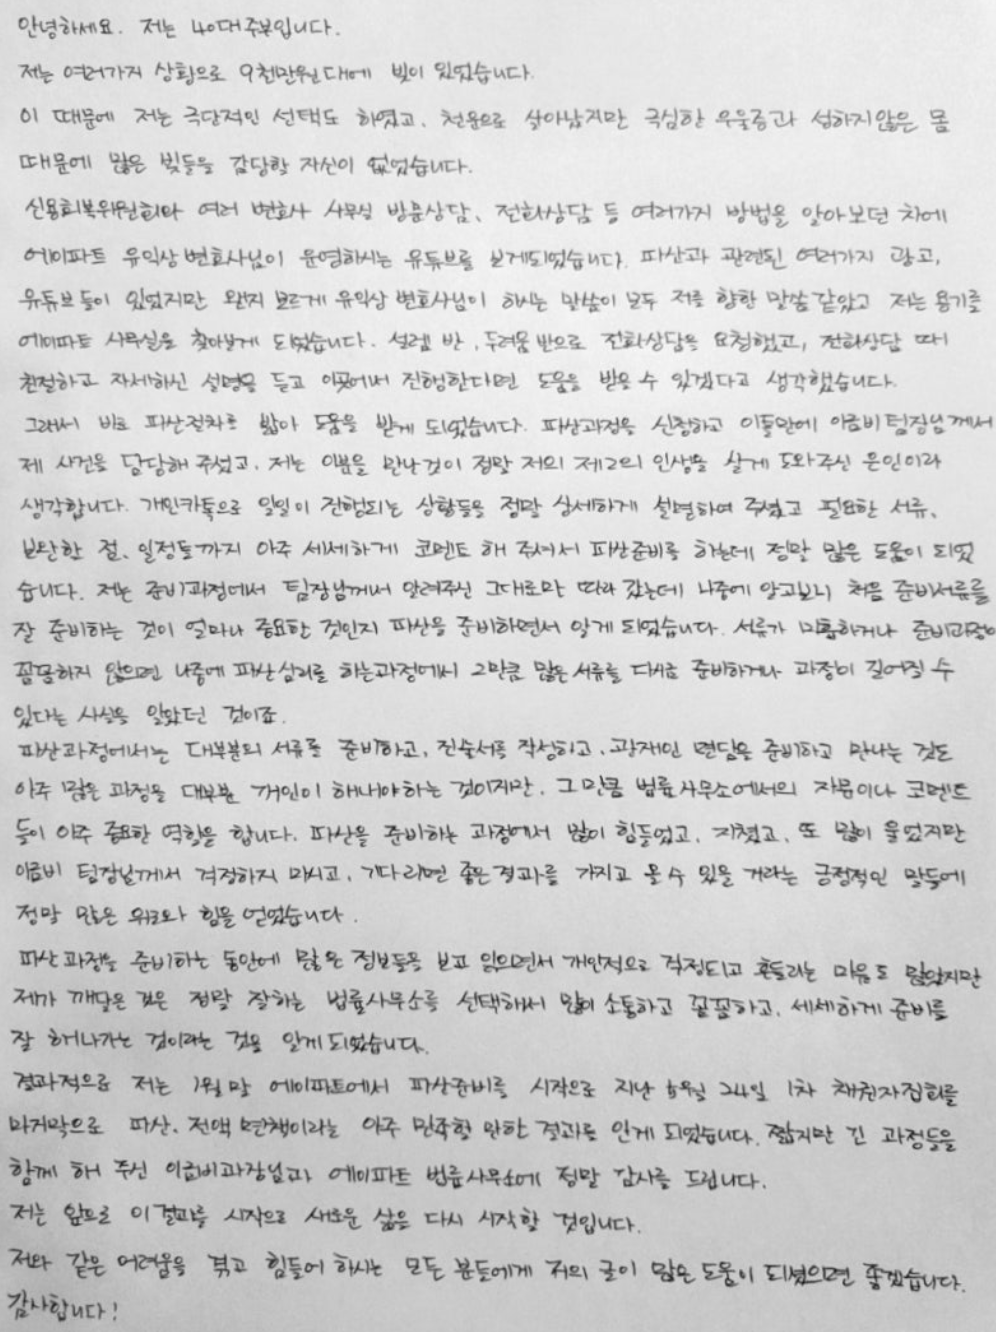 안녕하세요. 저는 40대 주부입니다.
저는 여러가지 상황으로 9천만원대에 빚이 있었습니다.
이 때문에 저는 극단적인 선택도 하였고, 천운으로 살아났지만 극심한 우울증과 성하지않은 몸
때문에 많은 빚들을 감당할 자신이 없었습니다.
신용회복위원회와 여러 변호사 사무실 방문상담, 전화상담 등 여러가지 방법을 알아보던 차에
에이파트 유익상 변호사님이 운영하시는 유튜브를 보게되었습니다. 파산과 관련된 여러가지 광고,
유튜브 들이 있었지만 왠지 모르게 유익상 변호사님이 하시는 말씀이 모두 저를 향한 말씀 같았고 저는 용기를
에이파트 사무실을 찾아보게 되었습니다. 설렘 반, 두려움 반으로 전화상담을 요청했고, 전화상담 때
친절하고 자세하신 설명을 듣고 이곳에서 진행한다면 도움을 받을 수 있겠다고 생각했습니다.
그래서 바로 파산절차를 밟아 도움을 받게 되었습니다. 파산과정을 신청하고 이틀만에 이금비팀장님께서
제 사건을 담당해 주셨고, 저는 이분을 만난것이 정말 저의 제2의 인생을 살게 도와주신 은인이라
생각합니다. 개인카톡으로 일일이 진행되는 상황들을 정말 상세하게 설명하여 주셨고 필요한 서류,
보완한 점, 일정들까지 아주 세세하게 코멘트 해 주셔서 파산준비를 하는데 정말 많은 도움이 되었
습니다. 저는 준비과정에서 팀장님께서 알려주신 그대로만 따라 갔는데 나중에 알고보니 처음 준비서류를
잘 준비하는 것이 얼마나 중요한 것인지 파산을 준비하면서 알게 되었습니다. 서류가 미흡하거나 준비과정이
꼼꼼하지 않으면 나중에 파산심리를 하는과정에서 그만큼 많은 서류를 다시금 준비하거나 과정이 길어질 수
있다는 사실을 알았던 것이죠.
파산과정에서는 대부분의 서류를 준비하고, 진술서를 작성하고, 관재인 면담을 준비하고 만나는 것도
아주 많은 과정을 대부분 개인이 해내야하는 것이지만, 그만큼 법률사무소에서의 자문이나 코멘트
들이 아주 중요한 역할을 합니다. 파산을 준비하는 과정에서 많이 힘들었고, 지쳤고, 또 많이 울었지만
이금비 팀장님께서 걱정하지 마시고, 기다리면 좋은결과를 가지고 올 수 있을 거라는 긍정적인 말들에
정말 많은 위로와 힘을 얻었습니다.
파산과정을 준비하는 동안에 많은 정보들을 보고 읽으면서 개인적으로 걱정되고 흔들리는 마음도 많았지만
제가 깨달은 것은 정말 잘하는 법률사무소를 선택해서 많이 소통하고 꼼꼼하고, 세세하게 준비를
잘 해나가는 것이라는 것을 알게 되었습니다.
결과적으로 저는 1월 말 에이파트에서 파산준비를 시작으로 지난 24일 1차 채권자집회를
마지막으로 파산, 전액 면책이라는 아주 만족할 만한 결과를 얻게 되었습니다. 짧지만 긴 과정들을
함께 해 주신 이금비과장님과 에이파트 법률사무소에 정말 감사를 드립니다.
저는 앞으로 이 결과를 시작으로 새로운 삶을 다시 시작할 것입니다.
저와 같은 어려움을 겪고 힘들어 하시는 모든 분들에게 저의 글이 많은 도움이 되셨으면 좋겠습니다.
감사합니다!